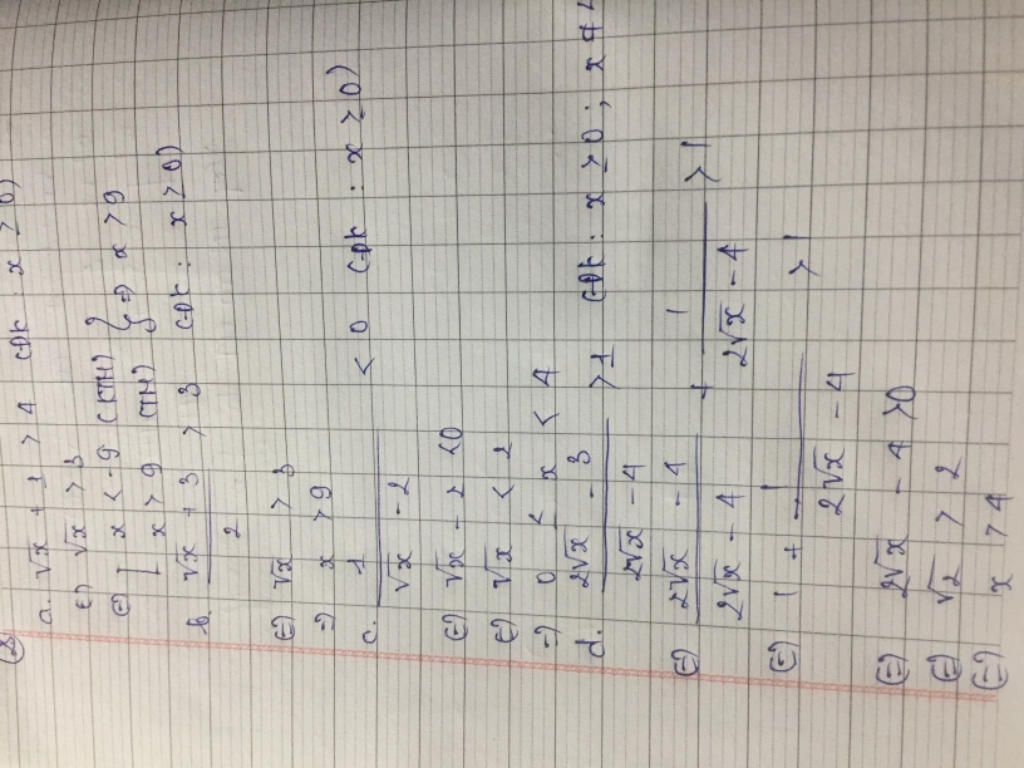 8
a. √x + 1 > 4 CĐK: x ≥ 0)
(=) √x > 3
(=) [ x < -9 (KTM) } => x > 9
x > 9 (TM)
b. (√x + 3)/2 > 3 CĐK: x ≥ 0)
(=) √x > 3
=) x > 9
c. 1/(√x - 2) < 0 CĐK: x ≥ 0)
(=) √x - 2 < 0
(=) √x < 2
=) 0 < x < 4
d. (2√x - 3)/(2√x - 4) > 1 CĐK: x ≥ 0; x ≠
(=) (2√x - 4)/(2√x - 4) + 1/(2√x - 4) > 1
(=) 1 + 1/(2√x - 4) > 1
(=) 2√x - 4 > 0
(=) √2 > 2
(=) x > 4